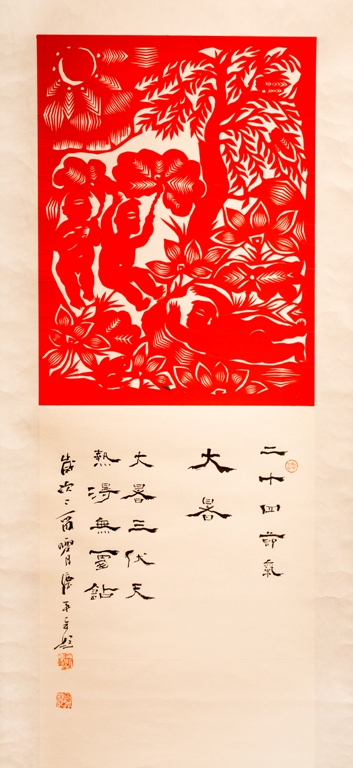 二十四節氣
大暑
大暑三伏天
熱得無處鉆
歲次丁酉